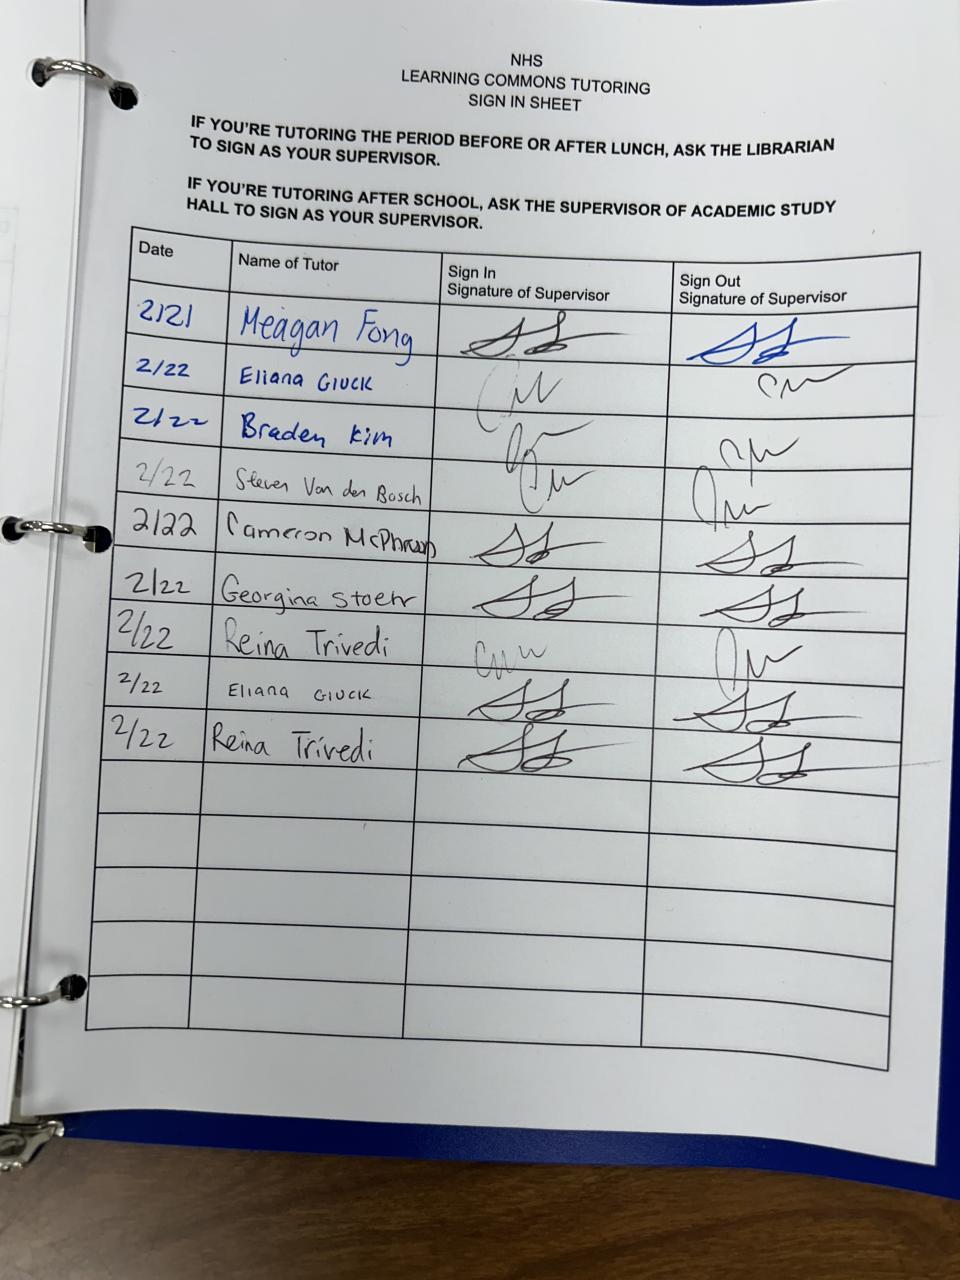 NHS
LEARNING COMMONS TUTORING
SIGN IN SHEET
IF YOU'RE TUTORING THE PERIOD BEFORE OR AFTER LUNCH, ASK THE LIBRARIAN
TO SIGN AS YOUR SUPERVISOR.
IF YOU'RE TUTORING AFTER SCHOOL, ASK THE SUPERVISOR OF ACADEMIC STUDY
HALL TO SIGN AS YOUR SUPERVISOR.
Date Name of Tutor Sign In Sign Out
Signature of Supervisor Signature of Supervisor
2/21 Meagan Fong
2/22 Eliana Gluck
2/22 Braden Kim
2/22 Steven Von den Bosch
2/22 Cameron
2/22 Georgina Stoehr
2/22 Reina Trivedi
2/22 Eliana Gluck
2/22 Reina Trivedi